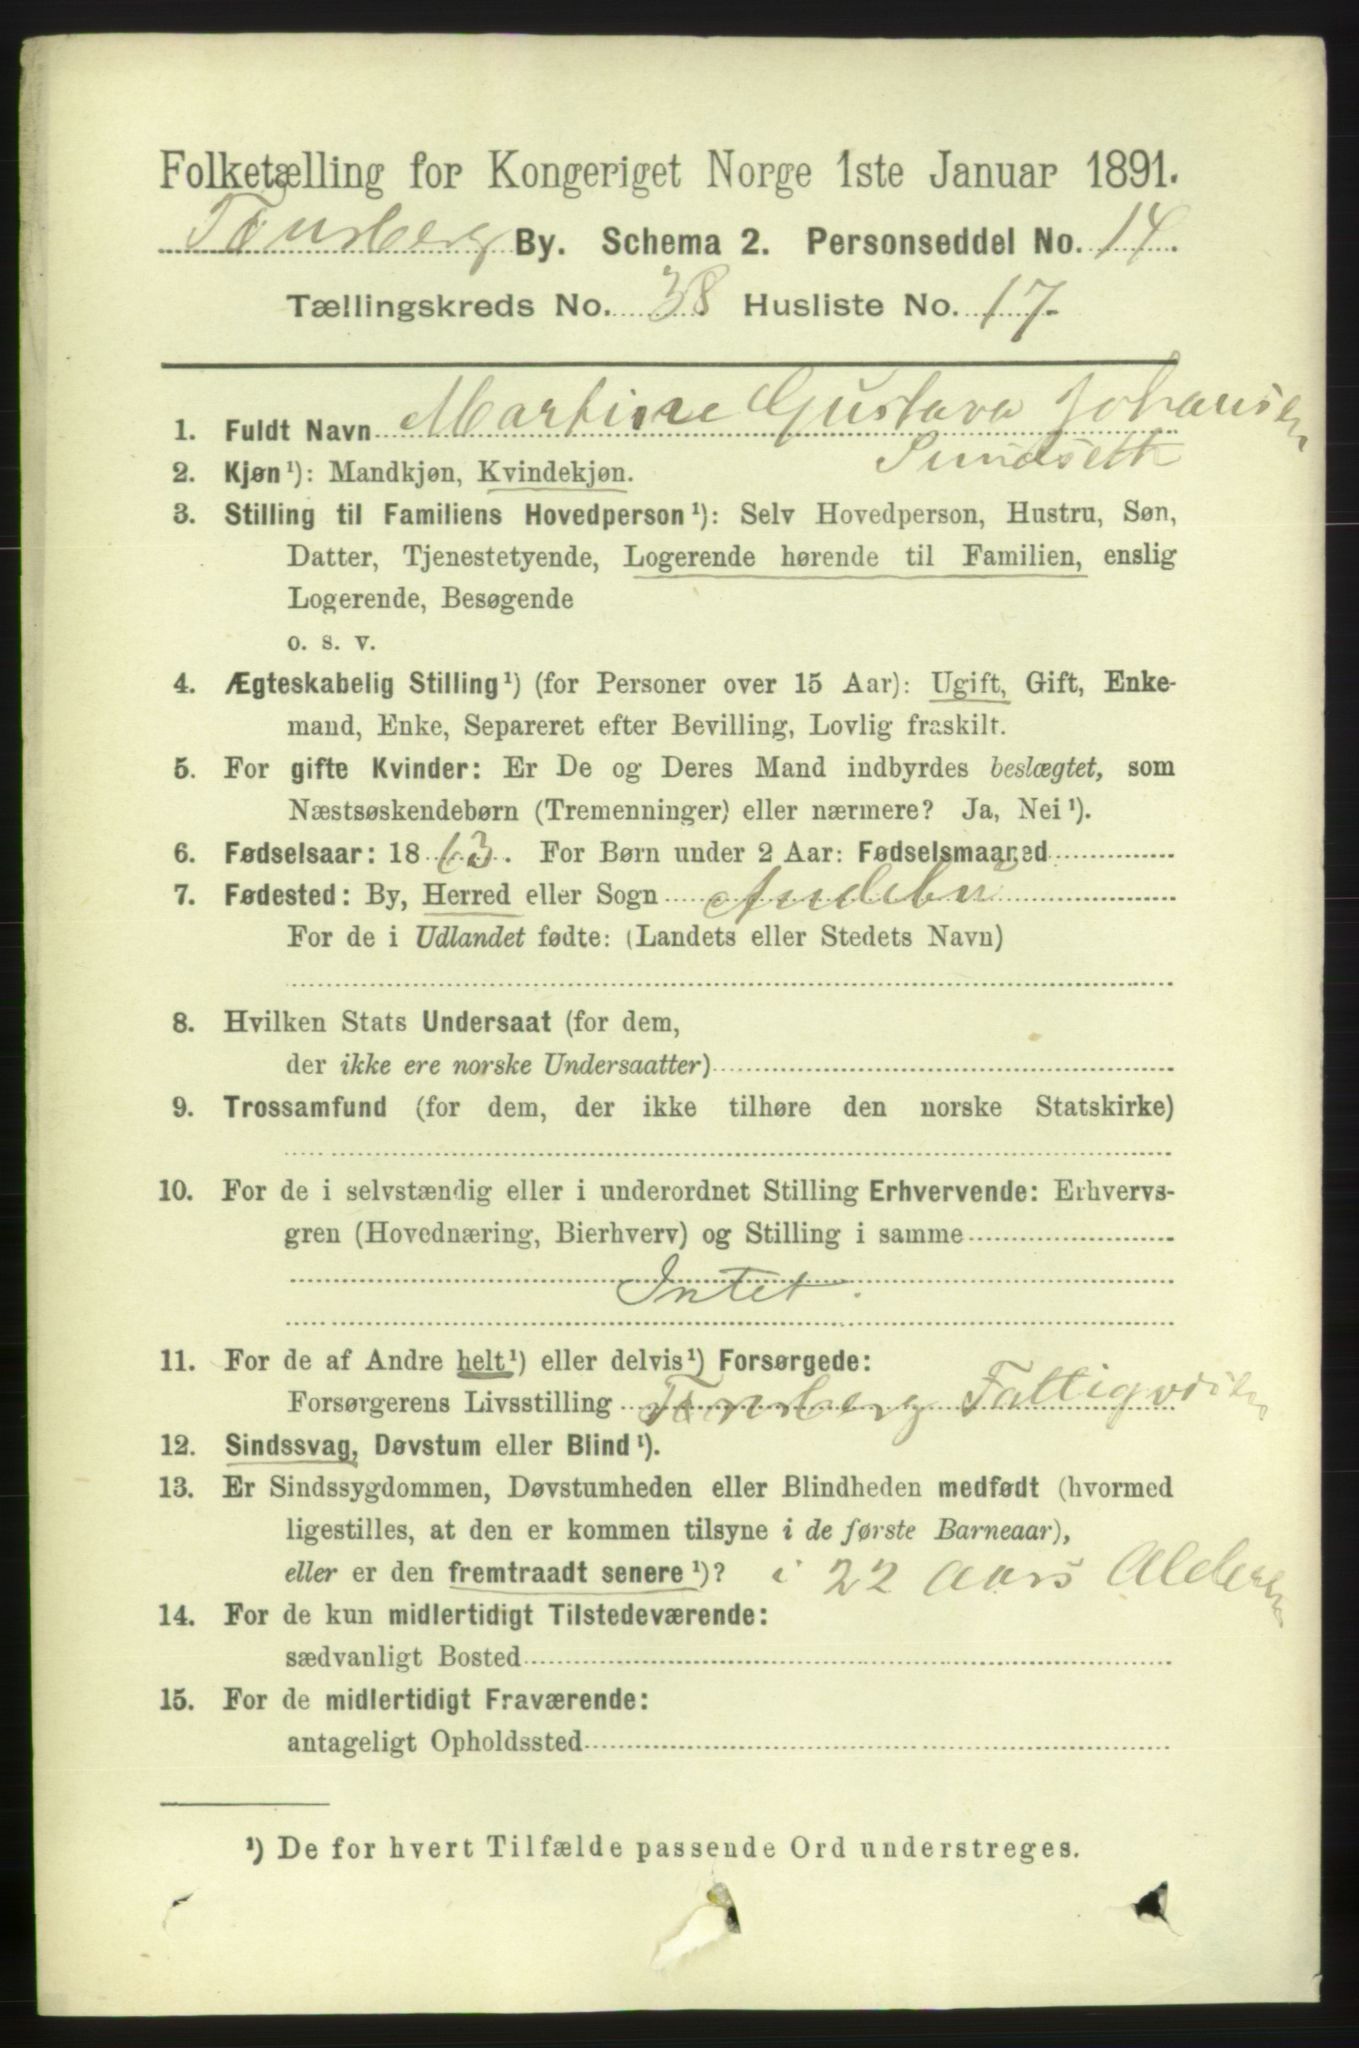 Folketælling for Kongeriget Norge 1ste Januar 1891.
Tønsberg By. Schema 2. Personseddel No. 14.
Tællingskreds No. 38 Husliste No. 17.
1. Fuldt Navn Martine Gustava Johansen
Sundseth
2. Kjøn¹): Mandkjøn, Kvindekjøn.
3. Stilling til Familiens Hovedperson¹): Selv Hovedperson, Hustru, Søn,
Datter, Tjenestetyende, Logerende hørende til Familien, enslig
Logerende, Besøgende
o. s. v.
4. Ægteskabelig Stilling¹) (for Personer over 15 Aar): Ugift, Gift, Enke-
mand, Enke, Separeret efter Bevilling, Lovlig fraskilt.
5. For gifte Kvinder: Er De og Deres Mand indbyrdes beslægtet, som
Næstsøskendebørn (Tremenninger) eller nærmere? Ja, Nei¹).
6. Fødselsaar: 1863. For Børn under 2 Aar: Fødselsmaaned
7. Fødested: By, Herred eller Sogn Andebu
For de i Udlandet fødte: (Landets eller Stedets Navn)
8. Hvilken Stats Undersaat (for dem,
der ikke ere norske Undersaatter)
9. Trossamfund (for dem, der ikke tilhøre den norske Statskirke)
10. For de i selvstændig eller i underordnet Stilling Erhvervende: Erhvervs-
gren (Hovednæring, Bierhverv) og Stilling i samme
Intet.
11. For de af Andre helt¹) eller delvis¹) Forsørgede:
Forsørgerens Livsstilling Tønsberg Fattigvæsen
12. Sindssvag, Døvstum eller Blind¹).
13. Er Sindssygdommen, Døvstumheden eller Blindheden medfødt (hvormed
ligestilles, at den er kommen tilsyne i de første Barneaar),
eller er den fremtraadt senere¹)? i 22 Aars Alderen
14. For de kun midlertidigt Tilstedeværende:
sædvanligt Bosted
15. For de midlertidigt Fraværende:
antageligt Opholdssted
¹) De for hvert Tilfælde passende Ord understreges.